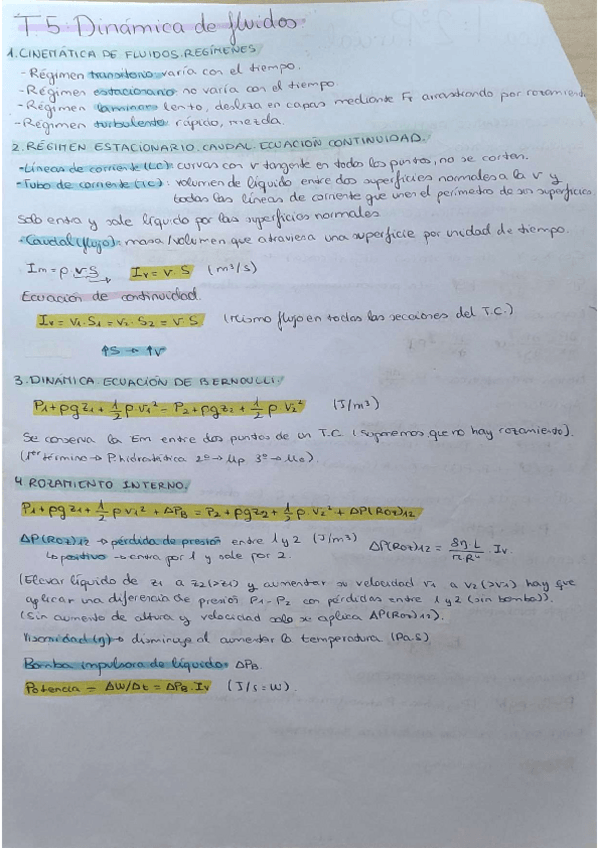 T.5. Dinámica de fluidos.
1. CINEMÁTICA DE FLUIDOS. REGÍMENES
- Régimen transitorio varía con el tiempo.
- Régimen estacionario no varía con el tiempo.
- Régimen laminar lento, desliza en capas mediante Fr arrastrando por rozamiento
- Régimen turbulento rápido, mezcla.
2. RÉGIMEN ESTACIONARIO. CAUDAL. ECUACIÓN CONTINUIDAD.
- Líneas de corriente (LC): curvas con v tangente en todos los puntos, no se cortan.
- Tubo de corriente (TC): volumen de líquido entre dos superficies normales a la v y
todas las líneas de corriente que unen el perímetro de sus superficies.
Solo entra y sale líquido por las superficies normales
- Caudal (flujo): masa/volumen que atraviesa una superficie por unidad de tiempo.
Im = ρ v·S Iv = v·S (m³/s)
Ecuación de continuidad.
Iv = v1·S1 = v2·S2 = v·S (mismo flujo en todas las secciones del T.C.)
↑S → ↑v
3. DINÁMICA. ECUACIÓN DE BERNOULLI.
P1 + ρgz1 + 1/2 ρ·v1² = P2 + ρgz2 + 1/2 ρ v2² (J/m³)
Se conserva la Em entre dos puntos de un T.C. (suponemos que no hay rozamiento).
(1er término → P. hidrostática 2º → μp 3º → μc).
4. ROZAMIENTO INTERNO.
P1 + ρgz1 + 1/2 ρ v1² + ΔPB = P2 + ρgz2 + 1/2 ρ·v2² + ΔP(Roz)12
ΔP(Roz)12 → pérdida de presión entre 1 y 2 (J/m³) ΔP(Roz)12 = 8η·L/πR⁴ · Iv.
↳ positivo → entra por 1 y sale por 2.
(Elevar líquido de z1 a z2 (>z1) y aumentar su velocidad v1 a v2 (>v1) hay que
aplicar una diferencia de presión P1-P2 con pérdidas entre 1 y 2 (sin bomba)).
(Sin aumento de altura y velocidad solo se aplica ΔP(Roz)12).
Viscosidad (η) → disminuye al aumentar la temperatura (Pa·s)
Bomba impulsora de líquidos ΔPB.
Potencia = ΔW/Δt = ΔPB·Iv (J/s = W).